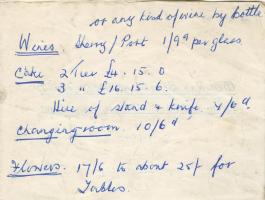 or any kind of wine by bottle
Wines. Sherry / Port 1/9d per glass.
Cake 2 Tier £4. 15. 0
3 " £16. 15. 6.
Hire of stand & knife. 4/6d.
Changing room. 10/6d
Flowers. 17/6 to about 25/- for
Tables.